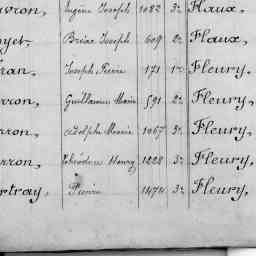 vron, Eugène Joseph 1082 3e Flaux,
yet, Briac Joseph 609 2e Flaux,
ran, Joseph Pierre 171 1re Fleury,
rron, Guillaume Marie 591 2e Fleury,
rron, Adolphe Marie 1067 3e Fleury,
rron, Théodore Henry 1228 3e Fleury,
rtray, Pierre 1474 3e Fleury,